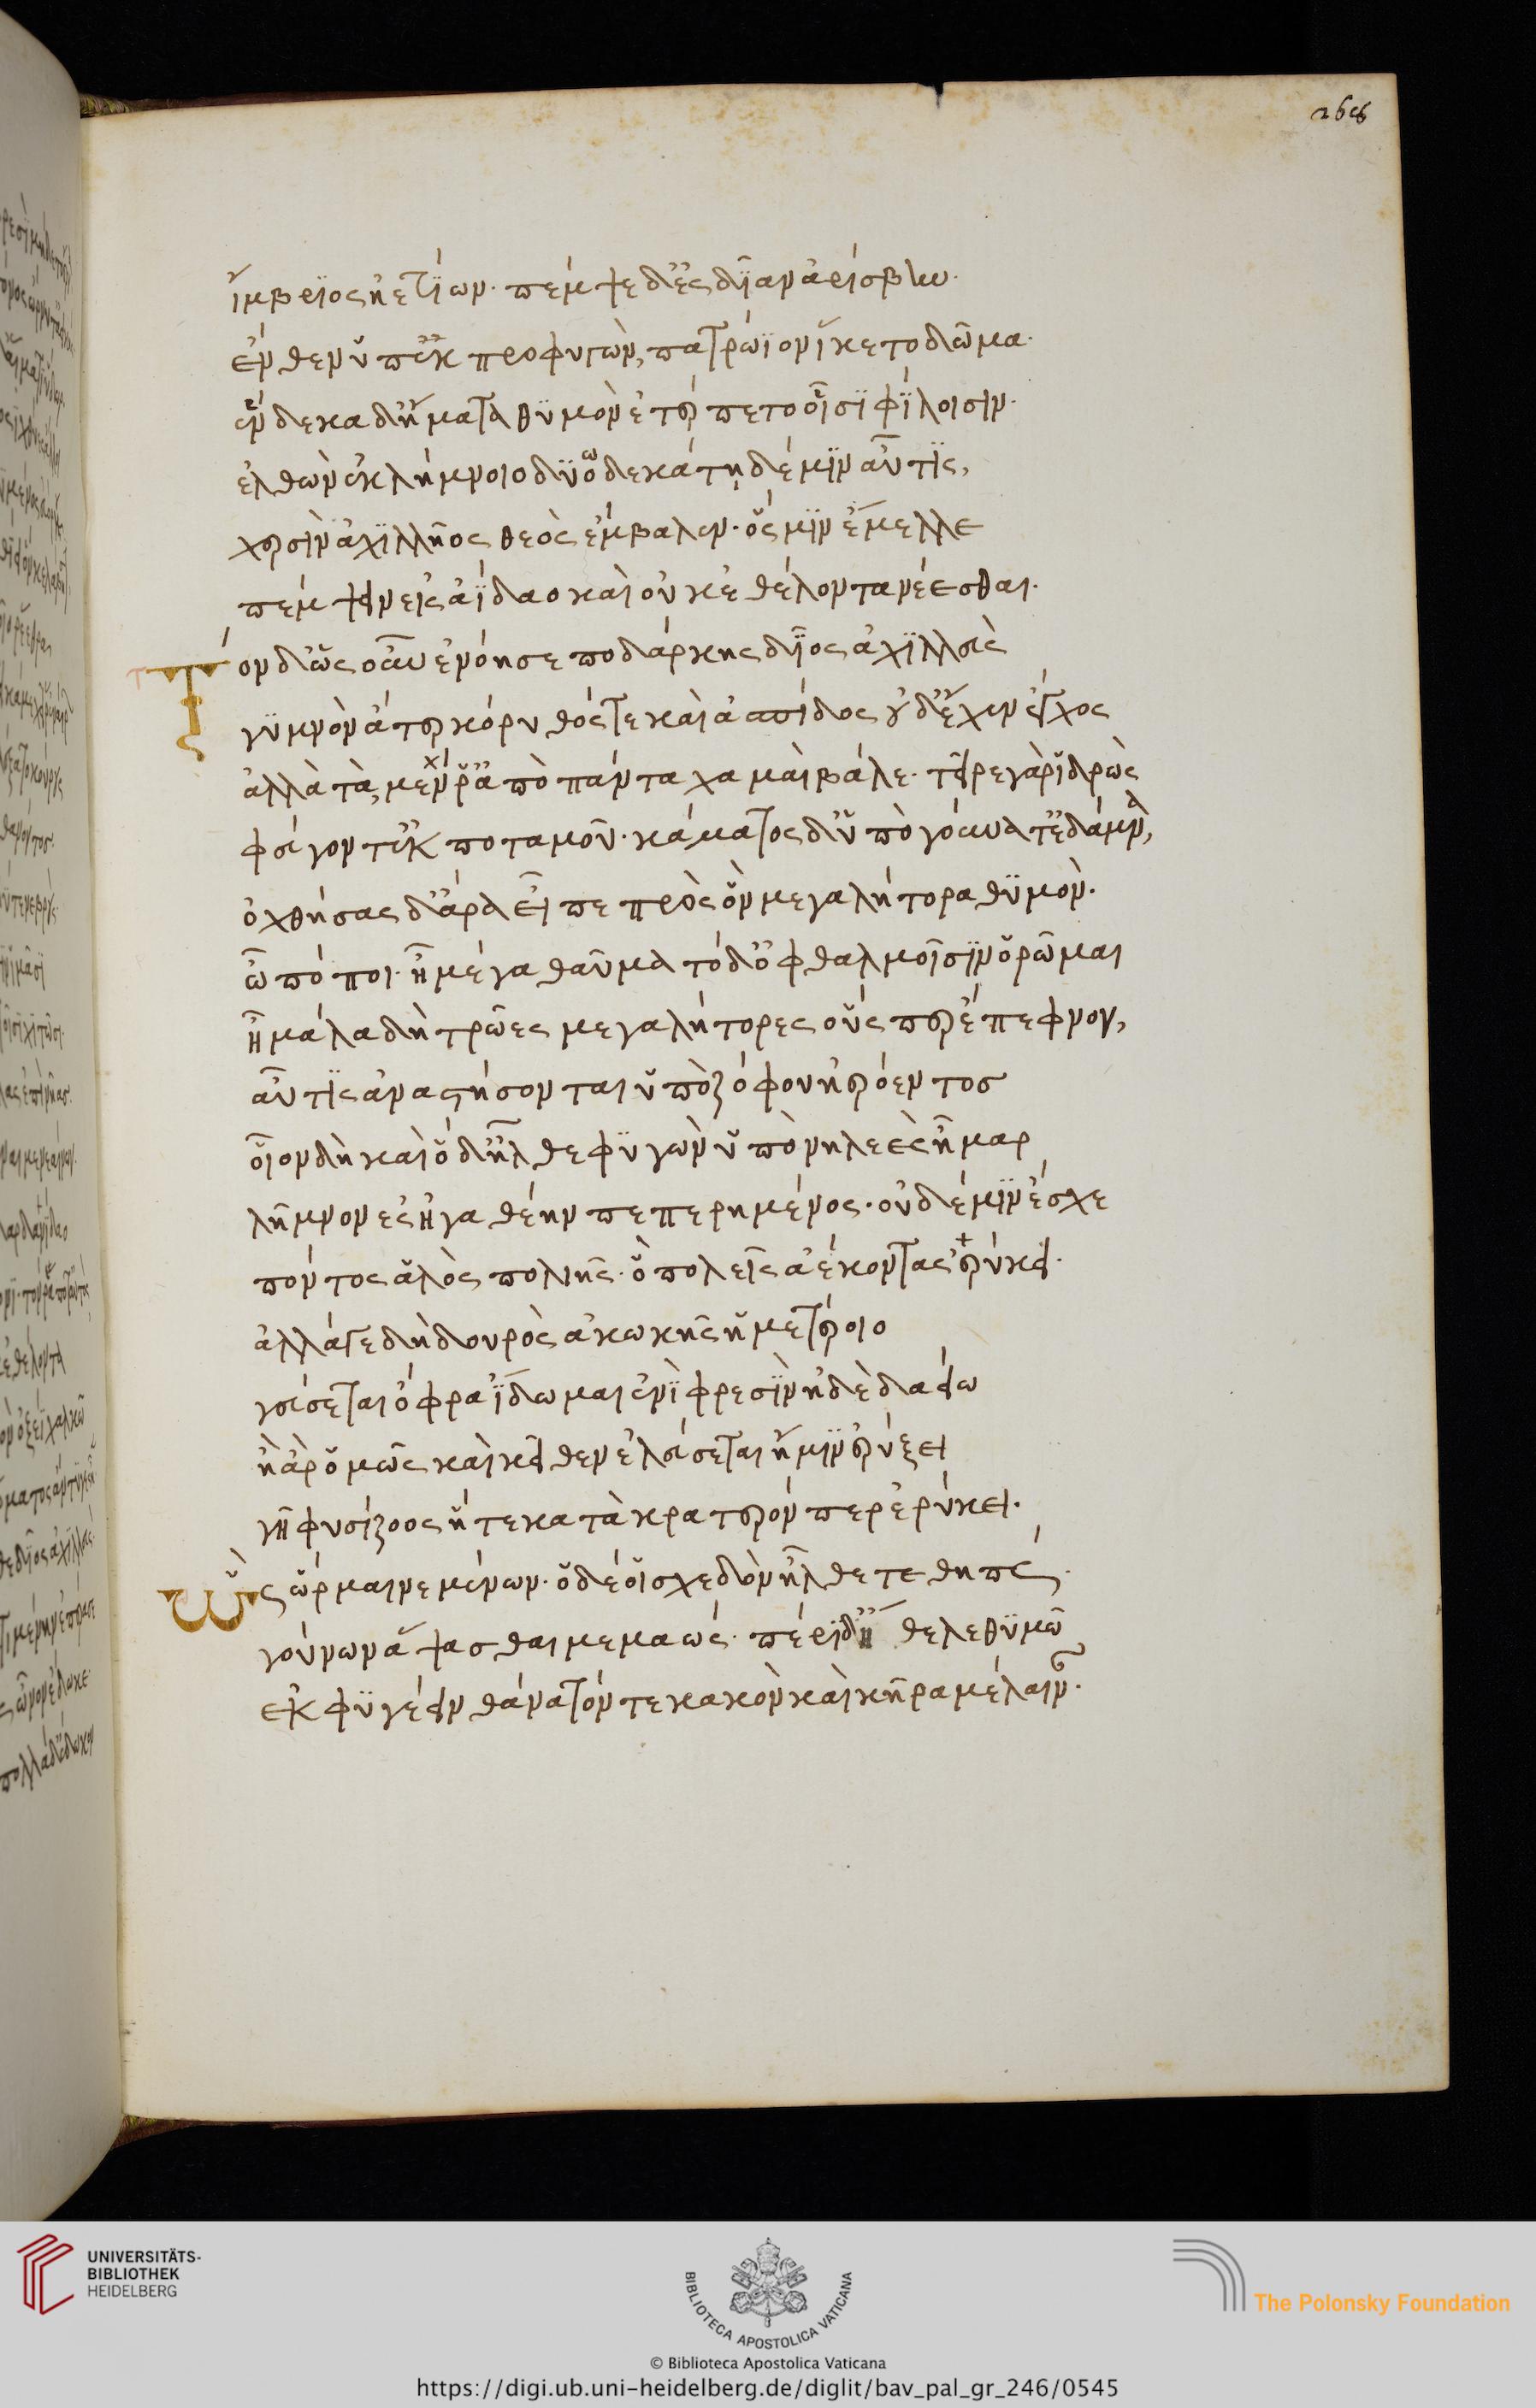 266
ἴμβριος ἠετίων· πέμψε δ' ἐς δῖαν ἀρίσβην·
ἔνθεν ὑπεκπροφυγὼν, πατρώϊον ἵκετο δῶμα·
ἕνδεκα δ' ἤματα θυμὸν ἐτέρπετο οἷσι φίλοισιν·
ἐλθὼν ἐκ λήμνοιο δυοδεκάτῃ δέ μιν αὖτις,
χερσὶν ἀχιλλῆος θεὸς ἔμβαλεν· ὅς μιν ἔμελλε
πέμψειν εἰς ἀΐδαο καὶ οὐκ ἐθέλοντα νέεσθαι·
Τὸν δ' ὡς οὖν ἐνόησε ποδάρκης δῖος ἀχιλλεὺς
γυμνὸν ἄτερ κόρυθός τε καὶ ἀσπίδος οὐδ' ἔχεν ἔγχος
ἀλλὰ τὰ μέν ῥ' ἀπὸ πάντα χαμαὶ βάλε· τεῖρε γὰρ ἱδρὼς
φεύγοντ' ἐκ ποταμοῦ· κάματος δ' ὑπὸ γούνατ' ἐδάμνα,
ὀχθήσας δ' ἄρα εἶπε πρὸς ὃν μεγαλήτορα θυμόν·
ὢ πόποι· ἦ μέγα θαῦμα τόδ' ὀφθαλμοῖσιν ὁρῶμαι
ἦ μάλα δὴ τρῶες μεγαλήτορες οὕς περ ἔπεφνον,
αὖτις ἀναστήσονται ὑπὸ ζόφου ἠερόεντος
οἷον δὴ καὶ ὅδ' ἦλθε φυγὼν ὑπὸ νηλεὲς ἦμαρ
λῆμνον ἐς ἠγαθέην πεπερημένος· οὐδέ μιν ἔσχε
πόντος ἁλὸς πολιῆς· ὃ πολεῖς ἀέκοντας ἐρύκει·
ἀλλ' ἄγε δὴ δουρὸς ἀκωκῆς ἡμετέροιο
γεύσεται ὄφρα ἴδωμαι ἐνὶ φρεσὶν ἠδὲ δαείω
ἢ ἂρ ὁμῶς καὶ κεῖθεν ἐλεύσεται ἤ μιν ἐρύξει
γῆ φυσίζοος ἥ τε κατὰ κρατερόν περ ἐρύκει·
Ὣς ὥρμαινε μένων· ὃ δέ οἱ σχεδὸν ἦλθε τεθηπώς·
γούνων ἅψασθαι μεμαώς· πέρι δ' ἤθελε θυμῶ
ἐκφυγέειν θάνατόν τε κακὸν καὶ κῆρα μέλαιναν·
UNIVERSITÄTS-
BIBLIOTHEK
HEIDELBERG
BIBLIOTECA APOSTOLICA VATICANA
The Polonsky Foundation
© Biblioteca Apostolica Vaticana
https://digi.ub.uni-heidelberg.de/diglit/bav_pal_gr_246/0545